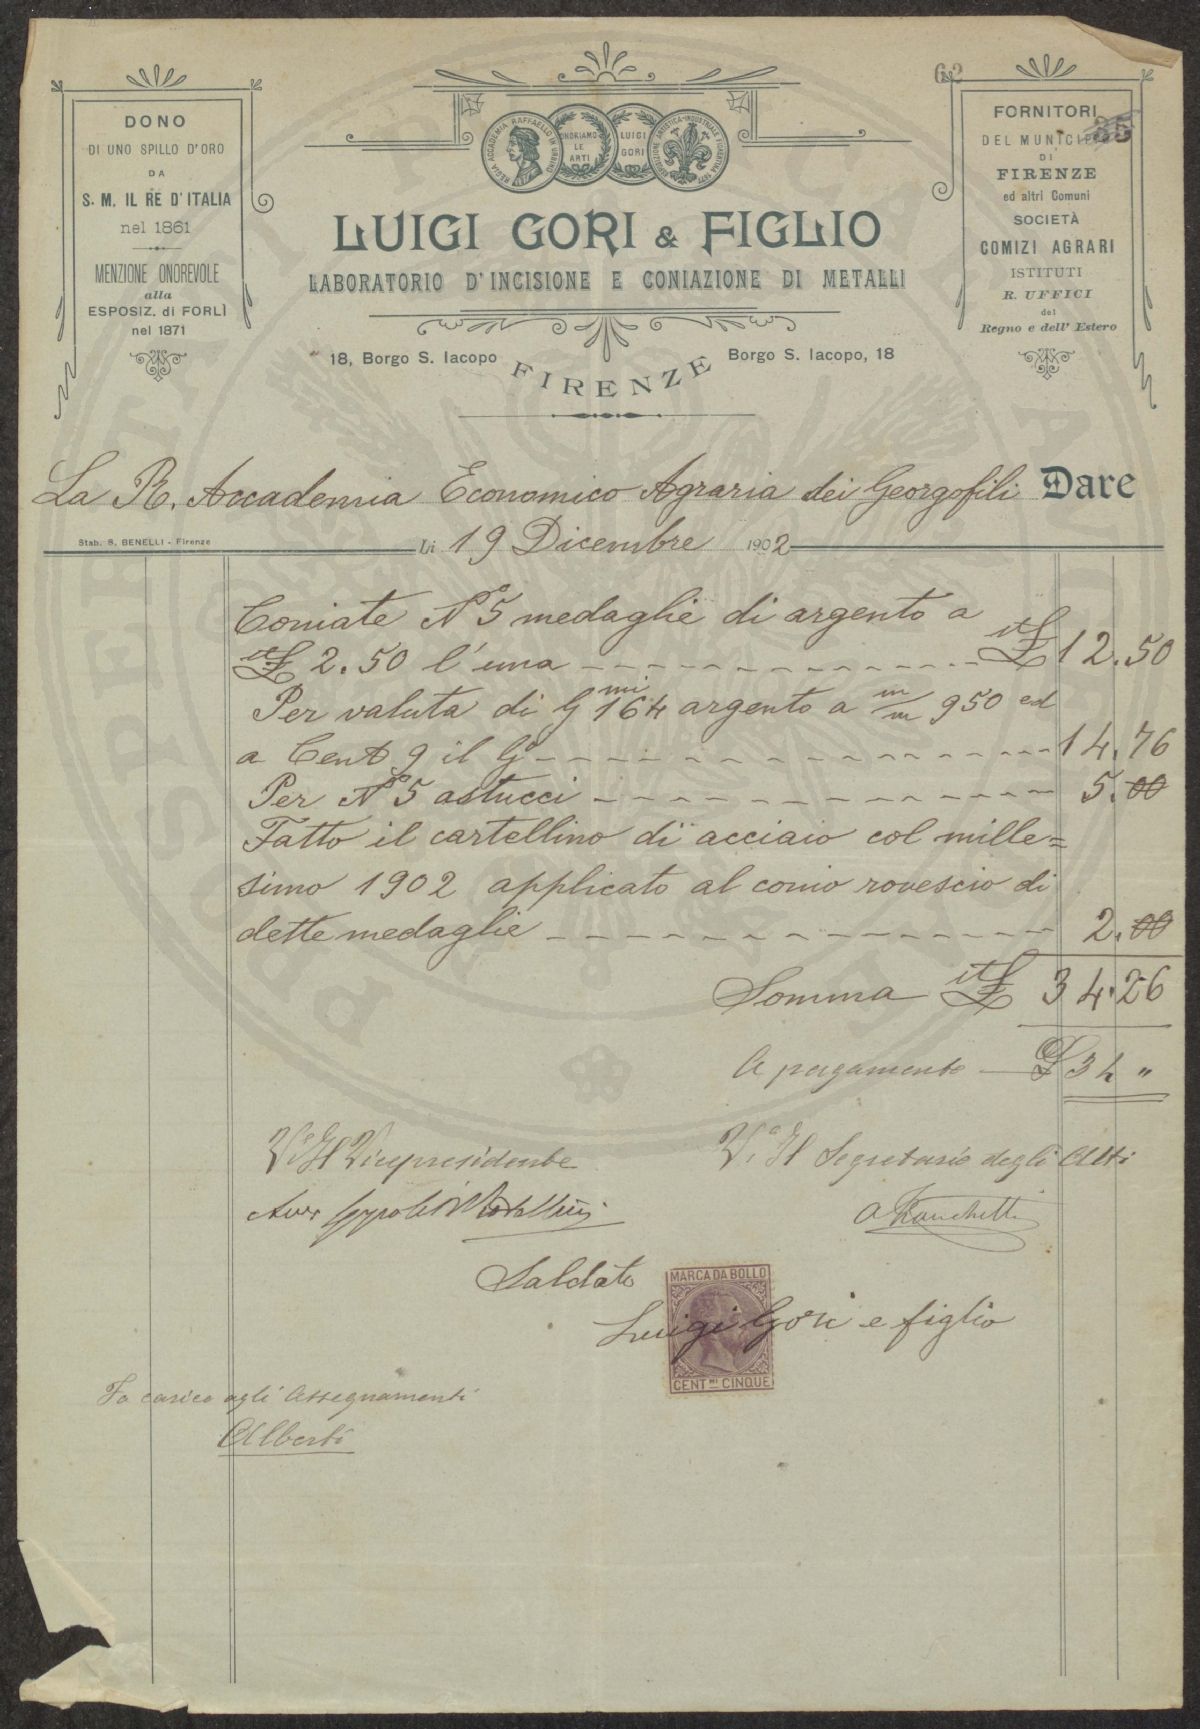 62
DONO
DI UNO SPILLO D'ORO
DA
S. M. IL RE D'ITALIA
nel 1861
MENZIONE ONOREVOLE
alla
ESPOSIZ. di FORLÌ
nel 1871
REGIA ACCADEMIA RAFFAELLO IN URBINO
ONORIAMO
LE
ARTI
LUIGI
GORI
ESPOSIZIONE ARTISTICA-INDUSTRIALE FIORENTINA
FORNITORI
DEL MUNICIPIO
DI
FIRENZE
ed altri Comuni
SOCIETÀ
COMIZI AGRARI
ISTITUTI
R. UFFICI
del
Regno e dell' Estero
LUIGI GORI & FIGLIO
LABORATORIO D'INCISIONE E CONIAZIONE DI METALLI
18, Borgo S. Iacopo
FIRENZE
Borgo S. Iacopo, 18
La R. Accademia Economico Agraria dei Georgofili Dare
Stab. S. BENELLI - Firenze
Li 19 Dicembre 1902
Coniate N° 5 medaglie di argento a
it£ 2.50 l'una it£ 12.50
Per valuta di G mi 164 argento a m/m 950 ed
a Cent 9 il G° 14.76
Per N° 5 astucci 5.00
Fatto il cartellino di acciaio col mille=
simo 1902 applicato al conio rovescio di
dette medaglie 2.00
Somma it£ 34.26
A pagamento £ 34 "
V° Il Vicepresidente
V° Il Segretario degli Atti
Saldato
Luigi Gori e figlio
MARCA DA BOLLO
CENT.MI CINQUE
Fo carico agli Assegnamenti
Alberti